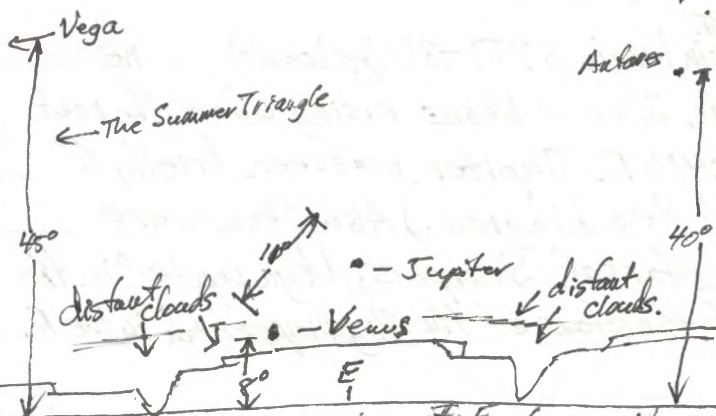 Vega
Antares
The Summer Triangle
45°
10°
40°
Jupiter
distant clouds
distant clouds.
Venus
8°
E